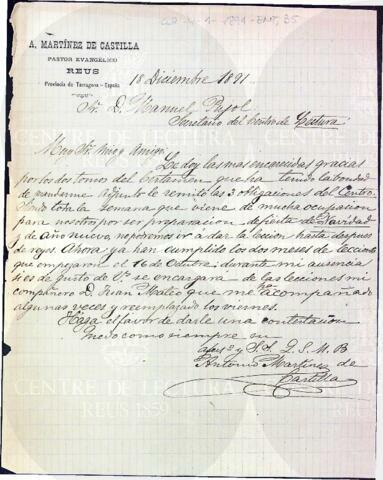 A. MARTÍNEZ DE CASTILLA
PASTOR EVANGÉLICO
REUS
Provincia de Tarragona - España
18 Diciembre 1891.
Sr. D. Manuel Pujol
Secretario del Centro de Lectura.
Muy Sr. mio y Amigo:
Le doy las mas encarecidas gracias
por los dos tomos del que ha tenido la bondad
de mandarme Adjunto le remito las 3 obligaciones del Centro.
Siendo toda la semana que viene de mucha ocupacion
para nosotros por ser preparacion de fiesta de Navidad
y de Año nuevo, no podremos ir á dar la leccion hasta despues
de reyes. Ahora ya han cumplido los dos meses de lecciones
que empezaron el 16 de Octubre; durante mi ausencia
si es de gusto de Vs. se encargara de las lecciones mi
compañero D. Juan que me ha acompañado
algunas veces y reemplazado los viernes.
Haga el favor de darle una contestacion
quedo como siempre su
afmo. y S.S. Q.S.M.B
Antonio Martinez de
Castilla
CENTRE DE LECTURA
REUS 1859